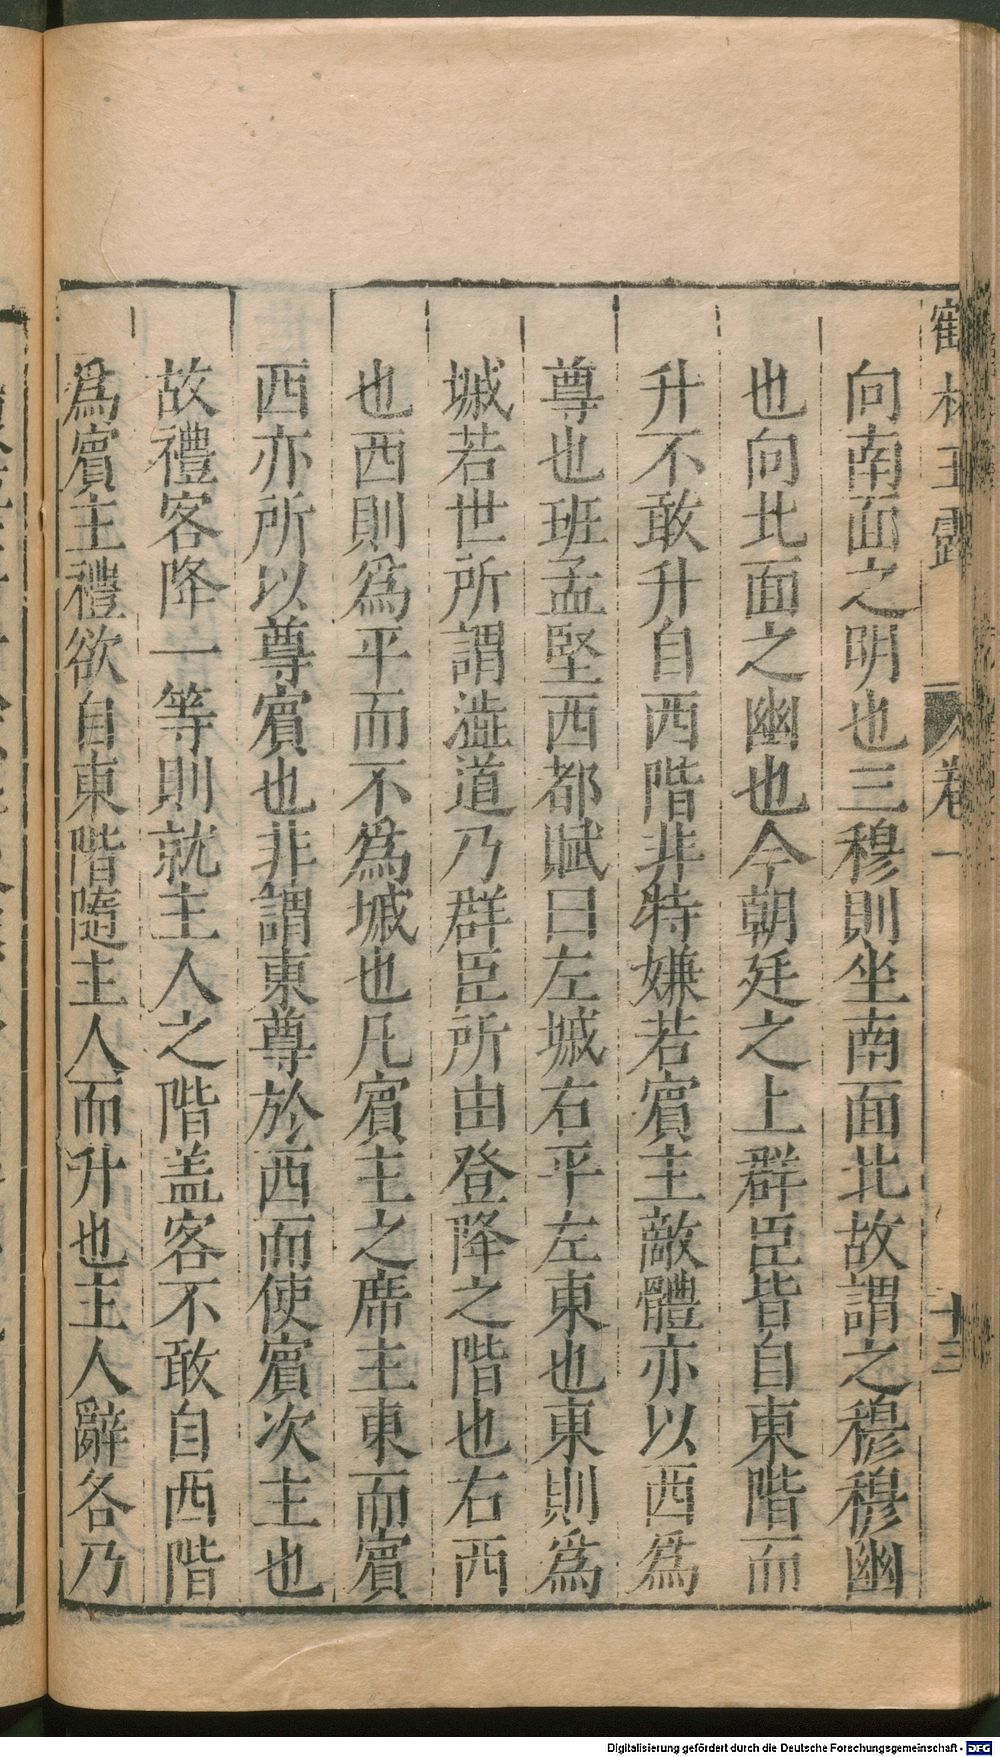 鶴林玉露 卷一 十三
向南面之明也三穆則坐南面北故謂之穆穆幽
也向北面之幽也今朝廷之上群臣皆自東階而
升不敢升自西階非特嫌若賓主敵體亦以西為
尊也班孟堅西都賦曰左墄右平左東也東則為
墄若世所謂澁道乃群臣所由登降之階也右西
也西則為平而不為墄也凡賓主之席主東而賓
西亦所以尊賓也非謂東尊於西而使賓次主也
故禮客降一等則就主人之階盖客不敢自西階
為賓主禮欲自東階隨主人而升也主人辭各乃
Digitalisierung gefördert durch die Deutsche Forschungsgemeinschaft - DFG